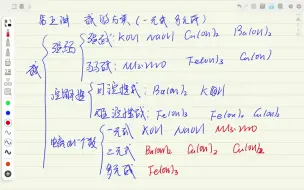 碱的分类(一元碱 多元碱)
碱
强弱
强碱: KOH NaOH Ca(OH)₂ Ba(OH)₂
弱碱: NH₃·H₂O Fe(OH)₃ Cu(OH)
溶解性
可溶性碱: Ba(OH)₂ KOH
难溶性碱: Fe(OH)₃ Fe(OH)₂ Cu(OH)₂
个数
一元碱 KOH NaOH NH₃·H₂O
二元碱 Ba(OH)₂ Ca(OH)₂ Cu(OH)₂
多元碱 Fe(OH)₃